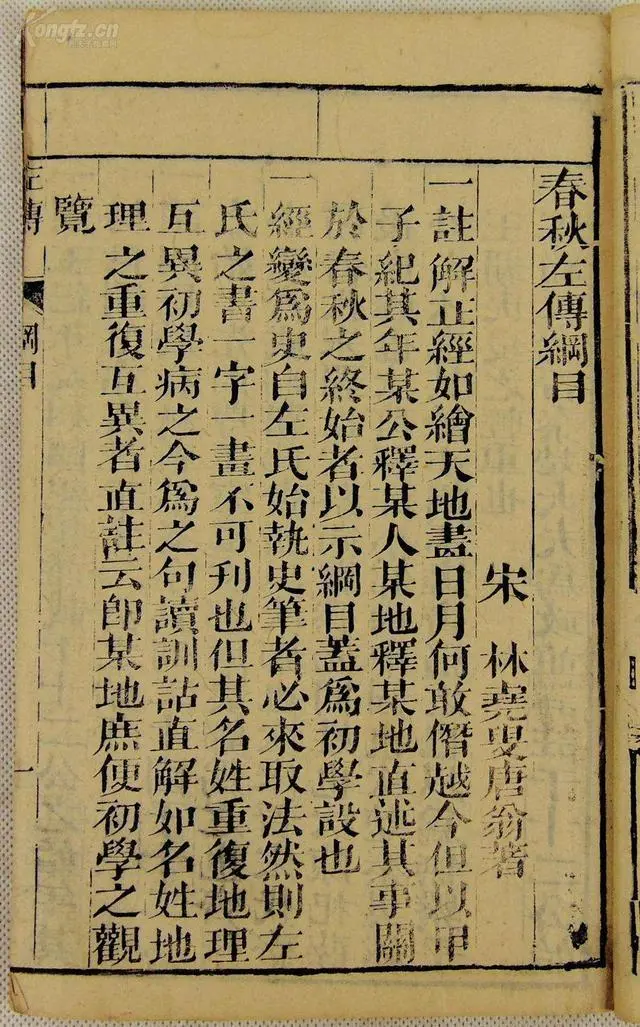 春秋左傳綱目
宋 林堯叟唐翁著
一註解正經如繪天地畫日月何敢僭越今但以甲
子紀其年某公釋某人某地釋某地直述其事關
於春秋之終始者以示綱目蓋爲初學設也
一經變爲史自左氏始執史筆者必來取法然則左
氏之書一字一畫不可刊也但其名姓重復地理
互異初學病之今爲之句讀訓詁直解如名姓地
理之重復互異者直註云卽某地庶便初學之觀
覽
左傳 綱目 一
Kongfz.cn